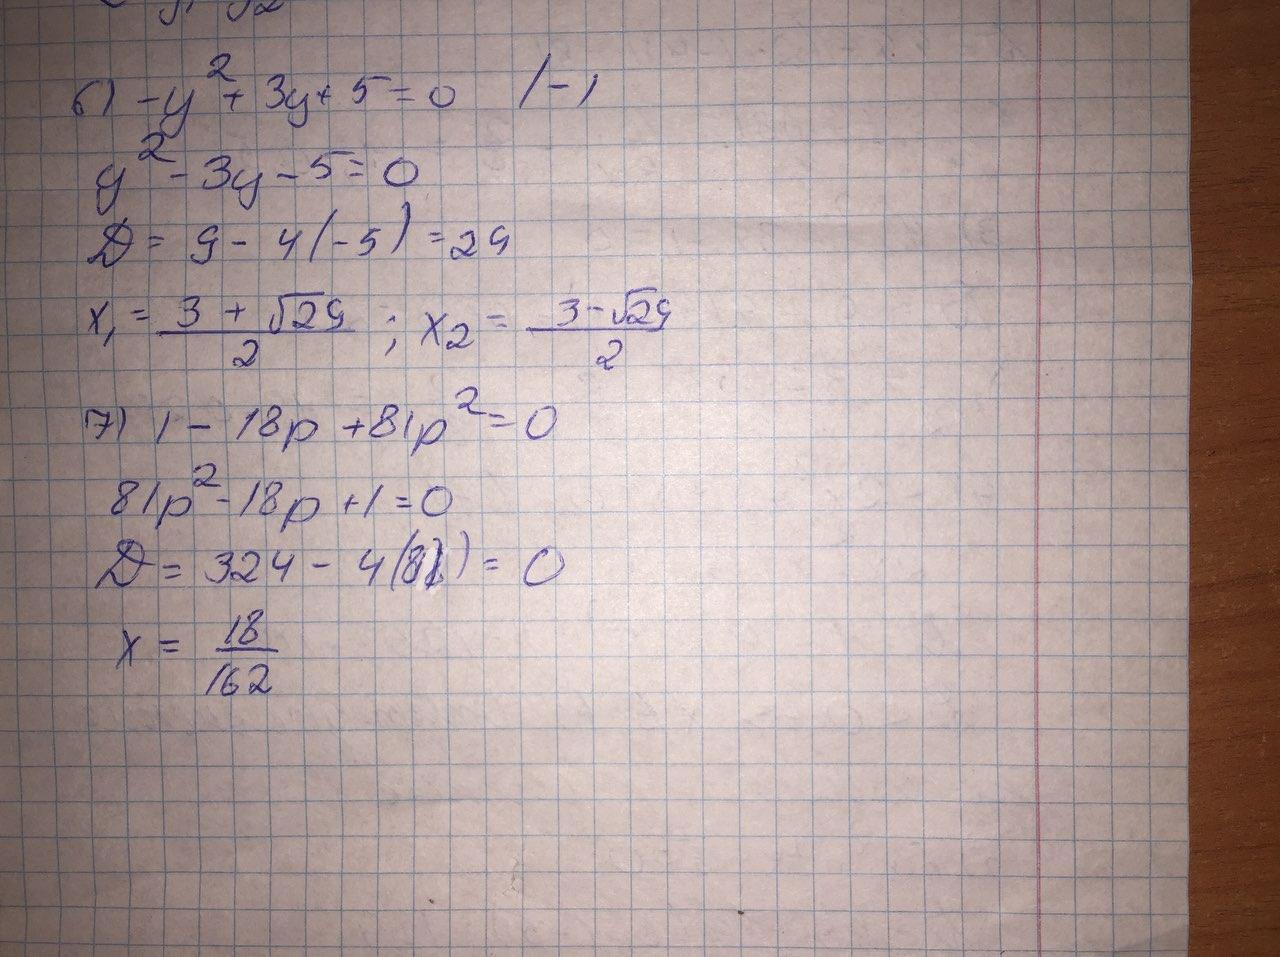 6) -y² + 3y + 5 = 0 /-1
y² - 3y - 5 = 0
D = 9 - 4(-5) = 29
x₁ = (3 + √29)/2 ; x₂ = (3 - √29)/2
7) 1 - 18p + 81p² = 0
81p² - 18p + 1 = 0
D = 324 - 4(81) = 0
x = 18/162